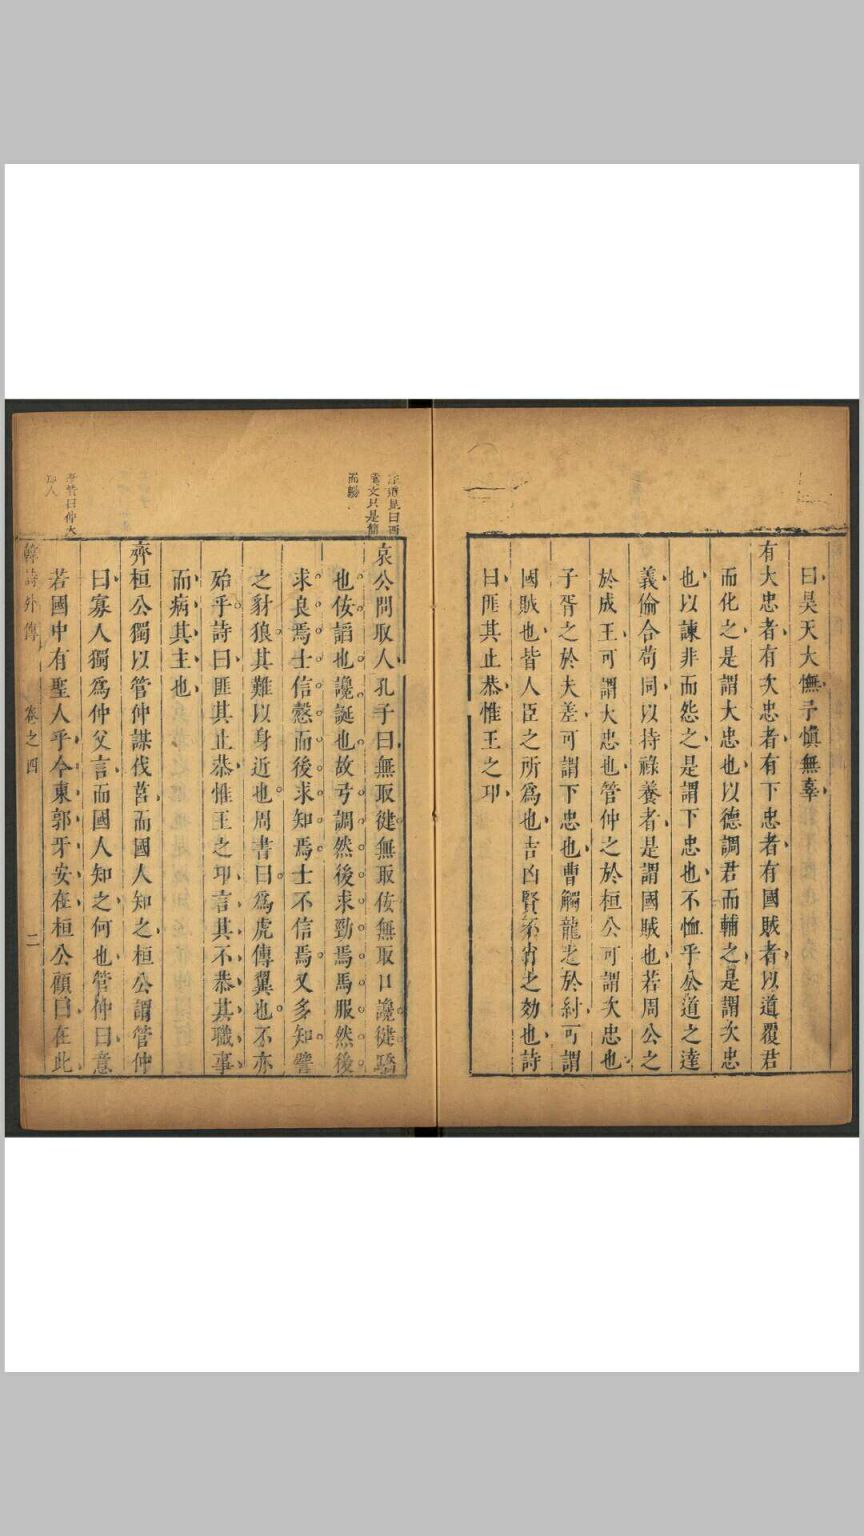 曰昊天大憮予慎無辜
有大忠者有次忠者有下忠者有國賊者以道覆君
而化之是謂大忠也以德調君而輔之是謂次忠
也以諫非而怨之是謂下忠也不恤乎公道之達
義偷合苟同以持祿養者是謂國賊也若周公之
於成王可謂大忠也管仲之於桓公可謂次忠也
子胥之於夫差可謂下忠也曹觸龍之於紂可謂
國賊也皆人臣之所爲也吉凶賢不肖之効也詩
曰匪其止恭惟王之卭
而
哀公問取人孔子曰無取健無取佞無取口讒健驕
也佞諂也讒誕也故弓調然後求勁焉馬服然後
求良焉士信愨而後求知焉士不信焉又多知譬
之豺狼其難以身近也周書曰爲虎傅翼也不亦
殆乎詩曰匪其止恭惟王之卭言其不恭其職事
而病其主也
齊桓公獨以管仲謀伐莒而國人知之桓公謂管仲
曰寡人獨爲仲父言而國人知之何也管仲曰意
若國中有聖人乎今東郭牙安在桓公顧曰在此
韓詩外傳 卷之四 二